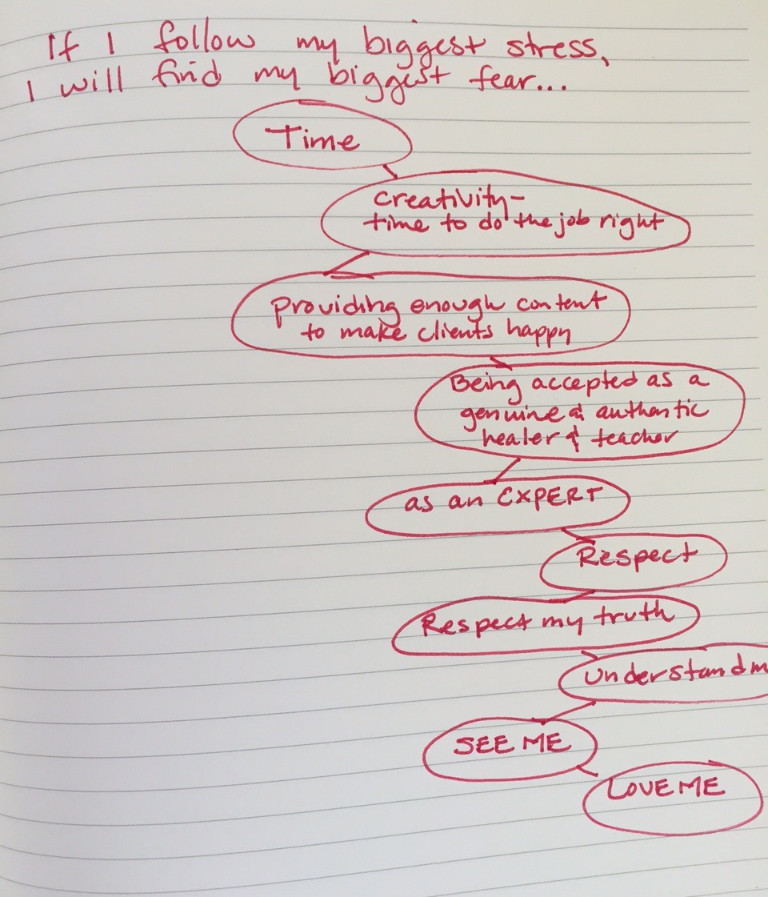 If I follow my biggest stress,
I will find my biggest fear...
Time
Creativity-
time to do the job right
providing enough content
to make clients happy
Being accepted as a
genuine & authentic
healer & teacher
as an EXPERT
Respect
Respect my truth
understand m
SEE ME
LOVE ME